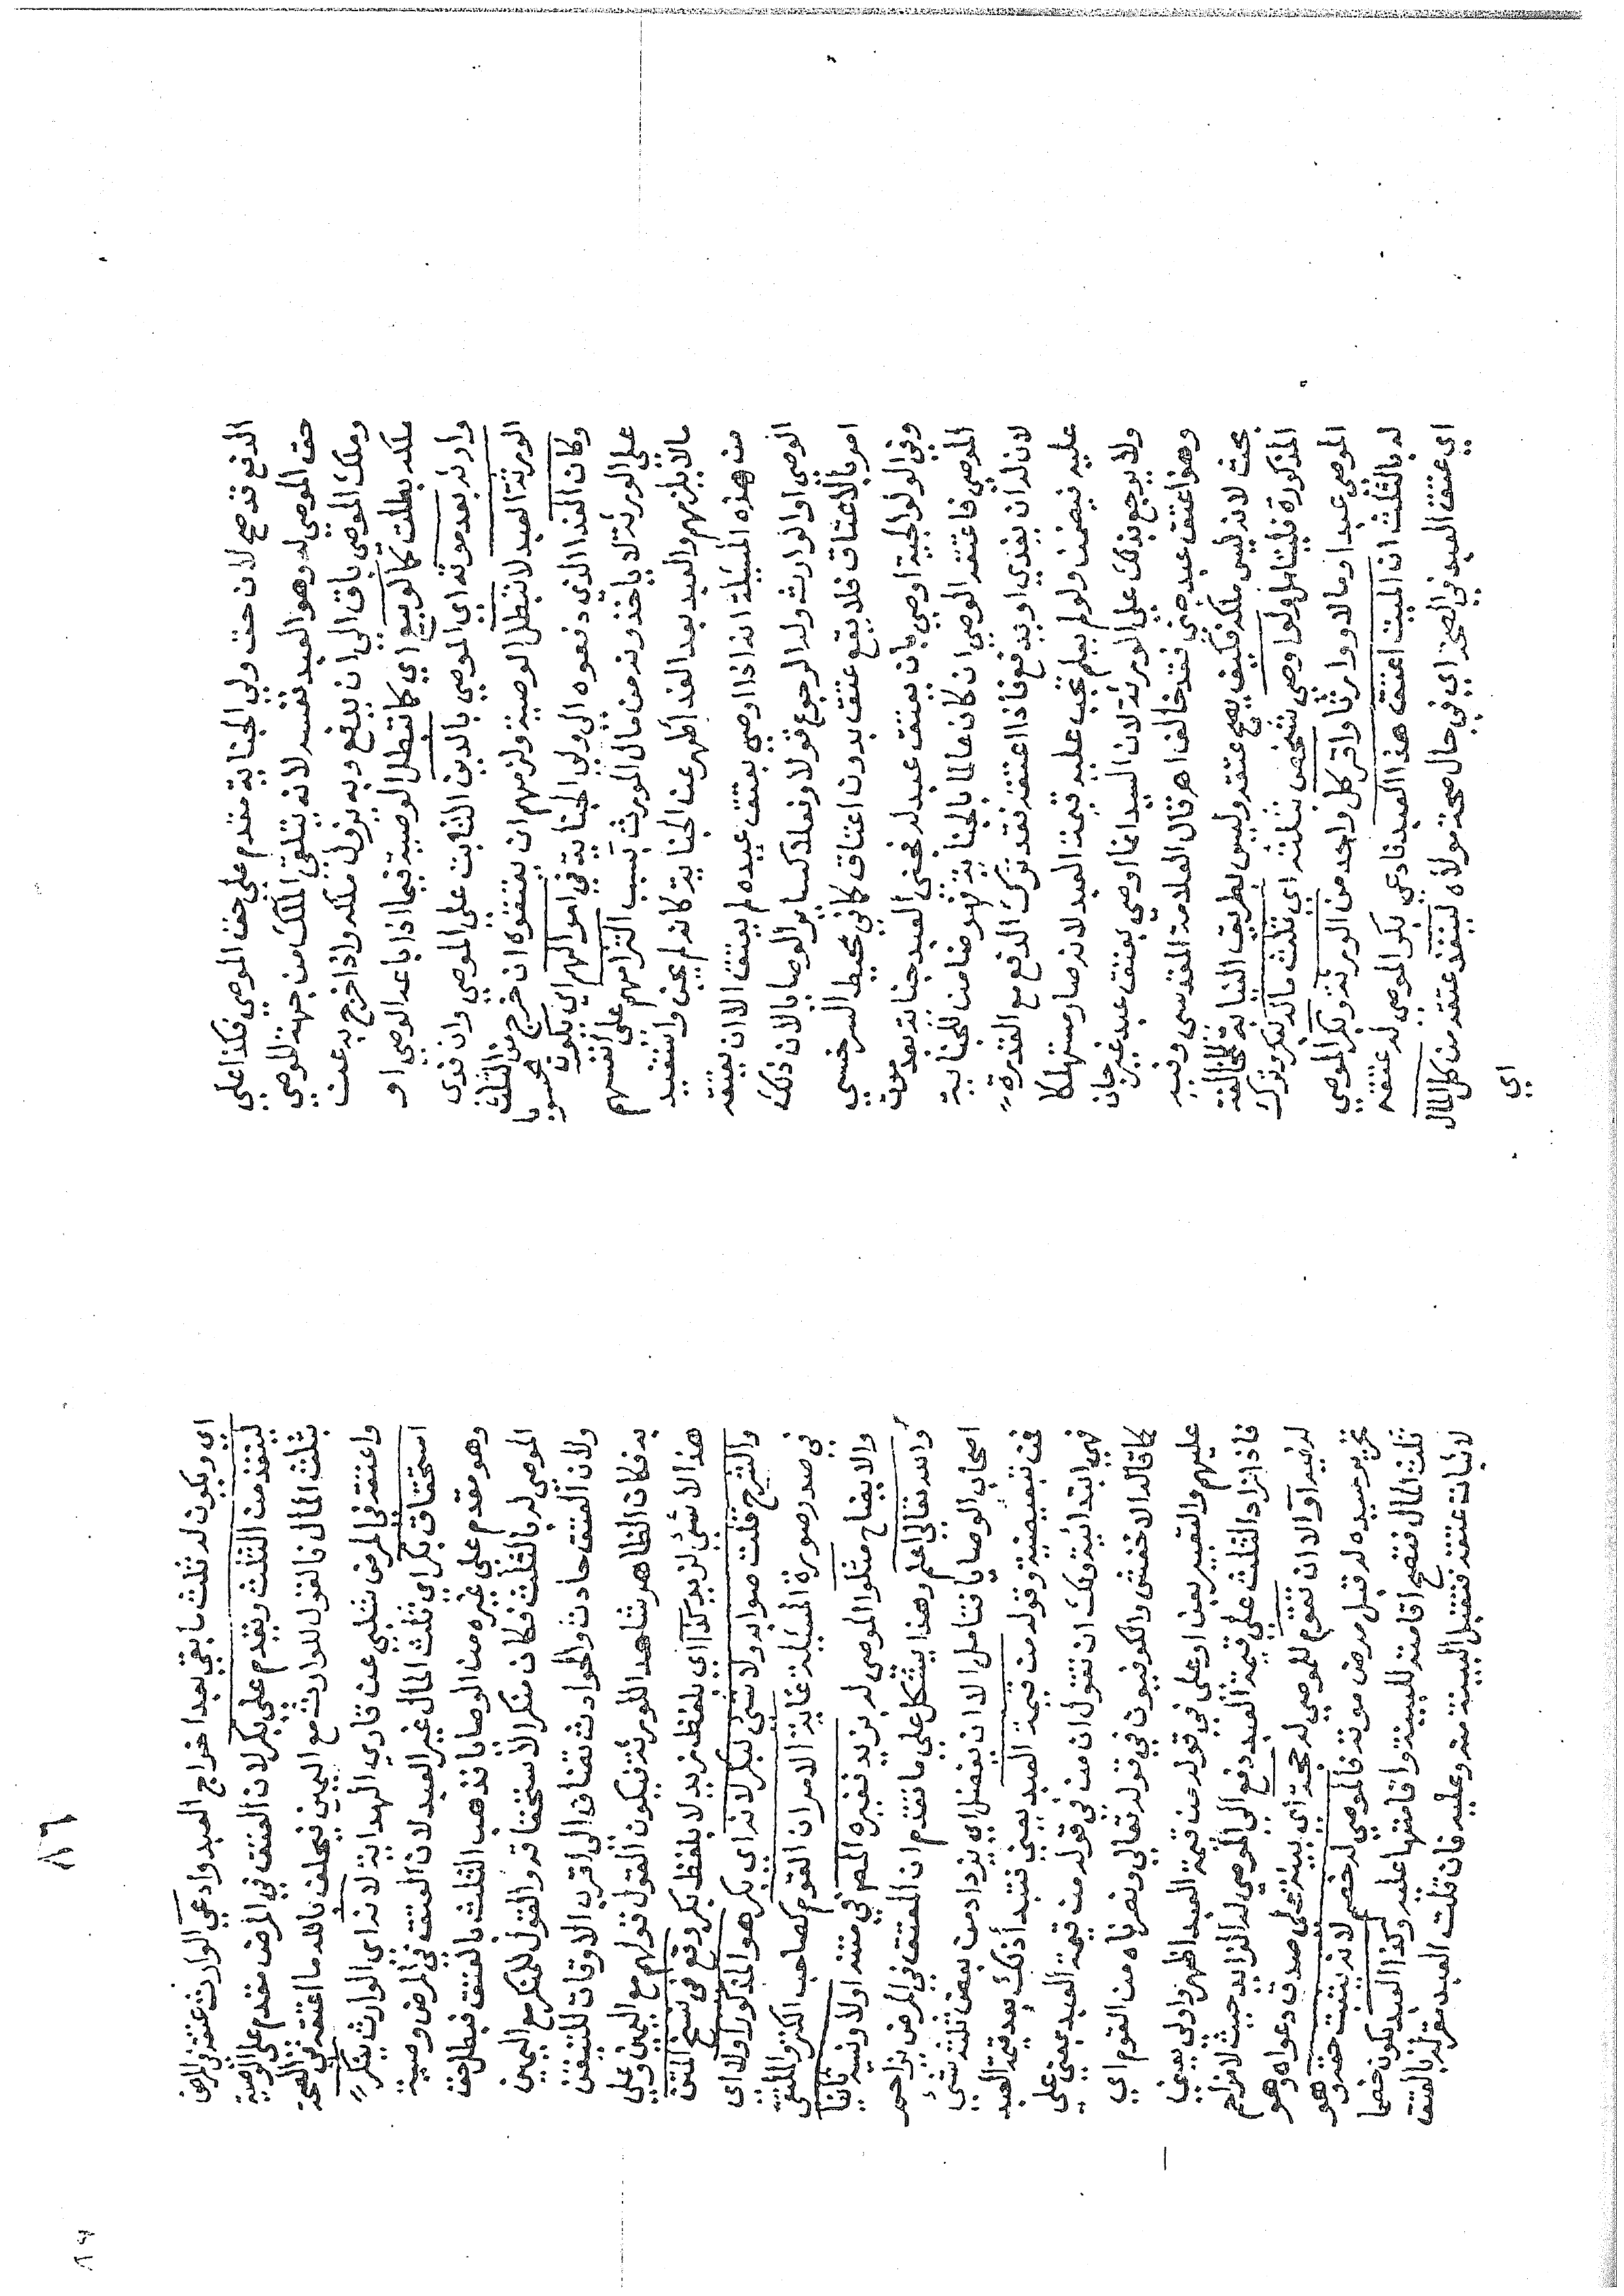 الدفع قد صح لان حق ولي الجناية مقدم علي حق الموصي فكذا علي
حق الموصي له وهو العبد نفسه لانه يتلقي الملك من جهة الموصي
وملك الموصي باق الي ان يدفع وبه يزول ملكه واذا خرج به عن
ملكه بطلت كما لو بيع اي كما تبطل الوصية فيما اذا باعه الوصي او
وارثه بعد موته اي الموصي بالدين الثابت علي الموصي وان فدى
الورثة العبد لا تبطل الوصية ولزمهم ان يعتقوه ان خرج من الثلث
وكان الفدا الذي دفعوه الي ولي الجناية في اموالهم اي يكون محسوبا
علي الورثة لا ياخذونه من مال المورث بسبب التزامهم علي انفسهم
مالا يلزمهم والعبد بعد الفدا طهر عن الجناية كانه لم يجن واستفيد
من هذه المسيلة انه اذا اوصي بعتق عبده لم يعتق الا ان يعتقه
الوصي او الوارث وله الرجوع قولا وفعلا كساير الوصايا لان ذلك
امر بالاعتاق فلا يقع عتق بدون اعتاق كما في محيط السرخسي
وفي الولوالجية اوصي بان يعتق عبد له فجني العبد جناية بعد موت
الموصي فاعتقه الوصي ان كان عالما بالجناية فهو ضامن للجناية
لان له ان يفدي او يدفع فاذا اعتقه فقد ترك الدفع مع القدرة
عليه فيضمن ولو لم يعلم تجب عليه قيمة العبد لانه صار مستهلكا
ولا يرجع بذلك علي الورثة لان السيد انما اوصي بعتق عبد غير جان
وهو اعتق عبد جني فقد خالف اهر قال العلامة المقدسي وفيه
بحث لانه ليس ملكه فكيف يصح عتقه وليس بطريق النيابة لمخالفة
المذكورة فليتامل ولو اوصي لشخص بثلثه اي بثلث ماله لبكر وترك
الموصي عبدا ومالا ووارثا واقر كل واحد من الورثة وبكر الموصي
له بالثلث ان الميت اعتق هذا العبد فادعي بكر الموصي له عتقه
اي عتق العبد في الصحة اي في حال صحة مولاه لينفذ عتقه من كل المال
اي
٨٦
اي ويكون له ثلث ما بقي بعد اخراج العبد وادعي الوارث عتقه في المرض
لينفذ من الثلث ويقدم علي بكر لان العتق في المرض مقدم علي الوصية
بثلث المال فالقول للوارث مع اليمين فيحلف بالله ما اعتقه في الصحة
واعتقه في المرض شلبي عن قاري الهداية لانه اي الوارث ينكر
استحقاق بكر اي ثلث المال غير العبد لان العتق في المرض وصية
وهو مقدم علي غيره من الوصايا فذهب الثلث بالعتق فبطل حق
الموصي له بالثلث فكان منكرا لاستحقاقه والقول للمنكر مع اليمين
ولان العتق حادث والحوادث تضاف الي اقرب الاوقات للتيقن
به فكان الظاهر شاهدا للورثة فيكون القول قولهم مع اليمين وعلي
هذا لا شي لزيد كذا اي بلفظ زيد لا بلفظ بكر وقع في نسخ المتن
والشرح قلت صوابه ولا شي لبكر لانه اي بكر هو المذكور اولا اي
في صدر صورة المسيلة غاية الامر ان القوم كصاحب الكنز والملتقي
والايضاح مثلوا الموصي له بزيد فغيره المص في متنه اولا ونسيه ثانيا
والله تعالي اعلم وهذا يشكل علي ما تقدم ان العتق في المرض يزاحم
اصحاب الوصايا فتامل الا ان يفضل اي يزداد من بعض ثلثه شي
فمن تبعيضية وقوله من قيمة العبد يعني تبتدأ ذلك بعد قيمة العبد
فهي ابتدائية ولك ان تقول ان من في قوله من قيمة العبد بمعني علي
كما قاله الاخفش والكوفيون في قوله تعالي ونصرناه من القوم اي
عليهم والتعبير بعن او علي في قوله من قيمة العبد اظهر واولي يعني
فاذا زاد الثلث علي قيمة العبد دفع الي الموصي له الزايد حيث لا مزاحم
له فيه او الا ان تقوم للموصي له حجة اي بينة علي صدق دعواه وهو
تحرير سيده له قبل مرض موته فالموصي له خصم لانه يثبت حقه وهو
ثلث المال فتصح اقامته للبينة واقامتها عليه وكذا العبد يكون خصما
لاثبات عتقه فتقبل البينة منه وعليه فان قلت العبد مقر له بالعتق
٨٦